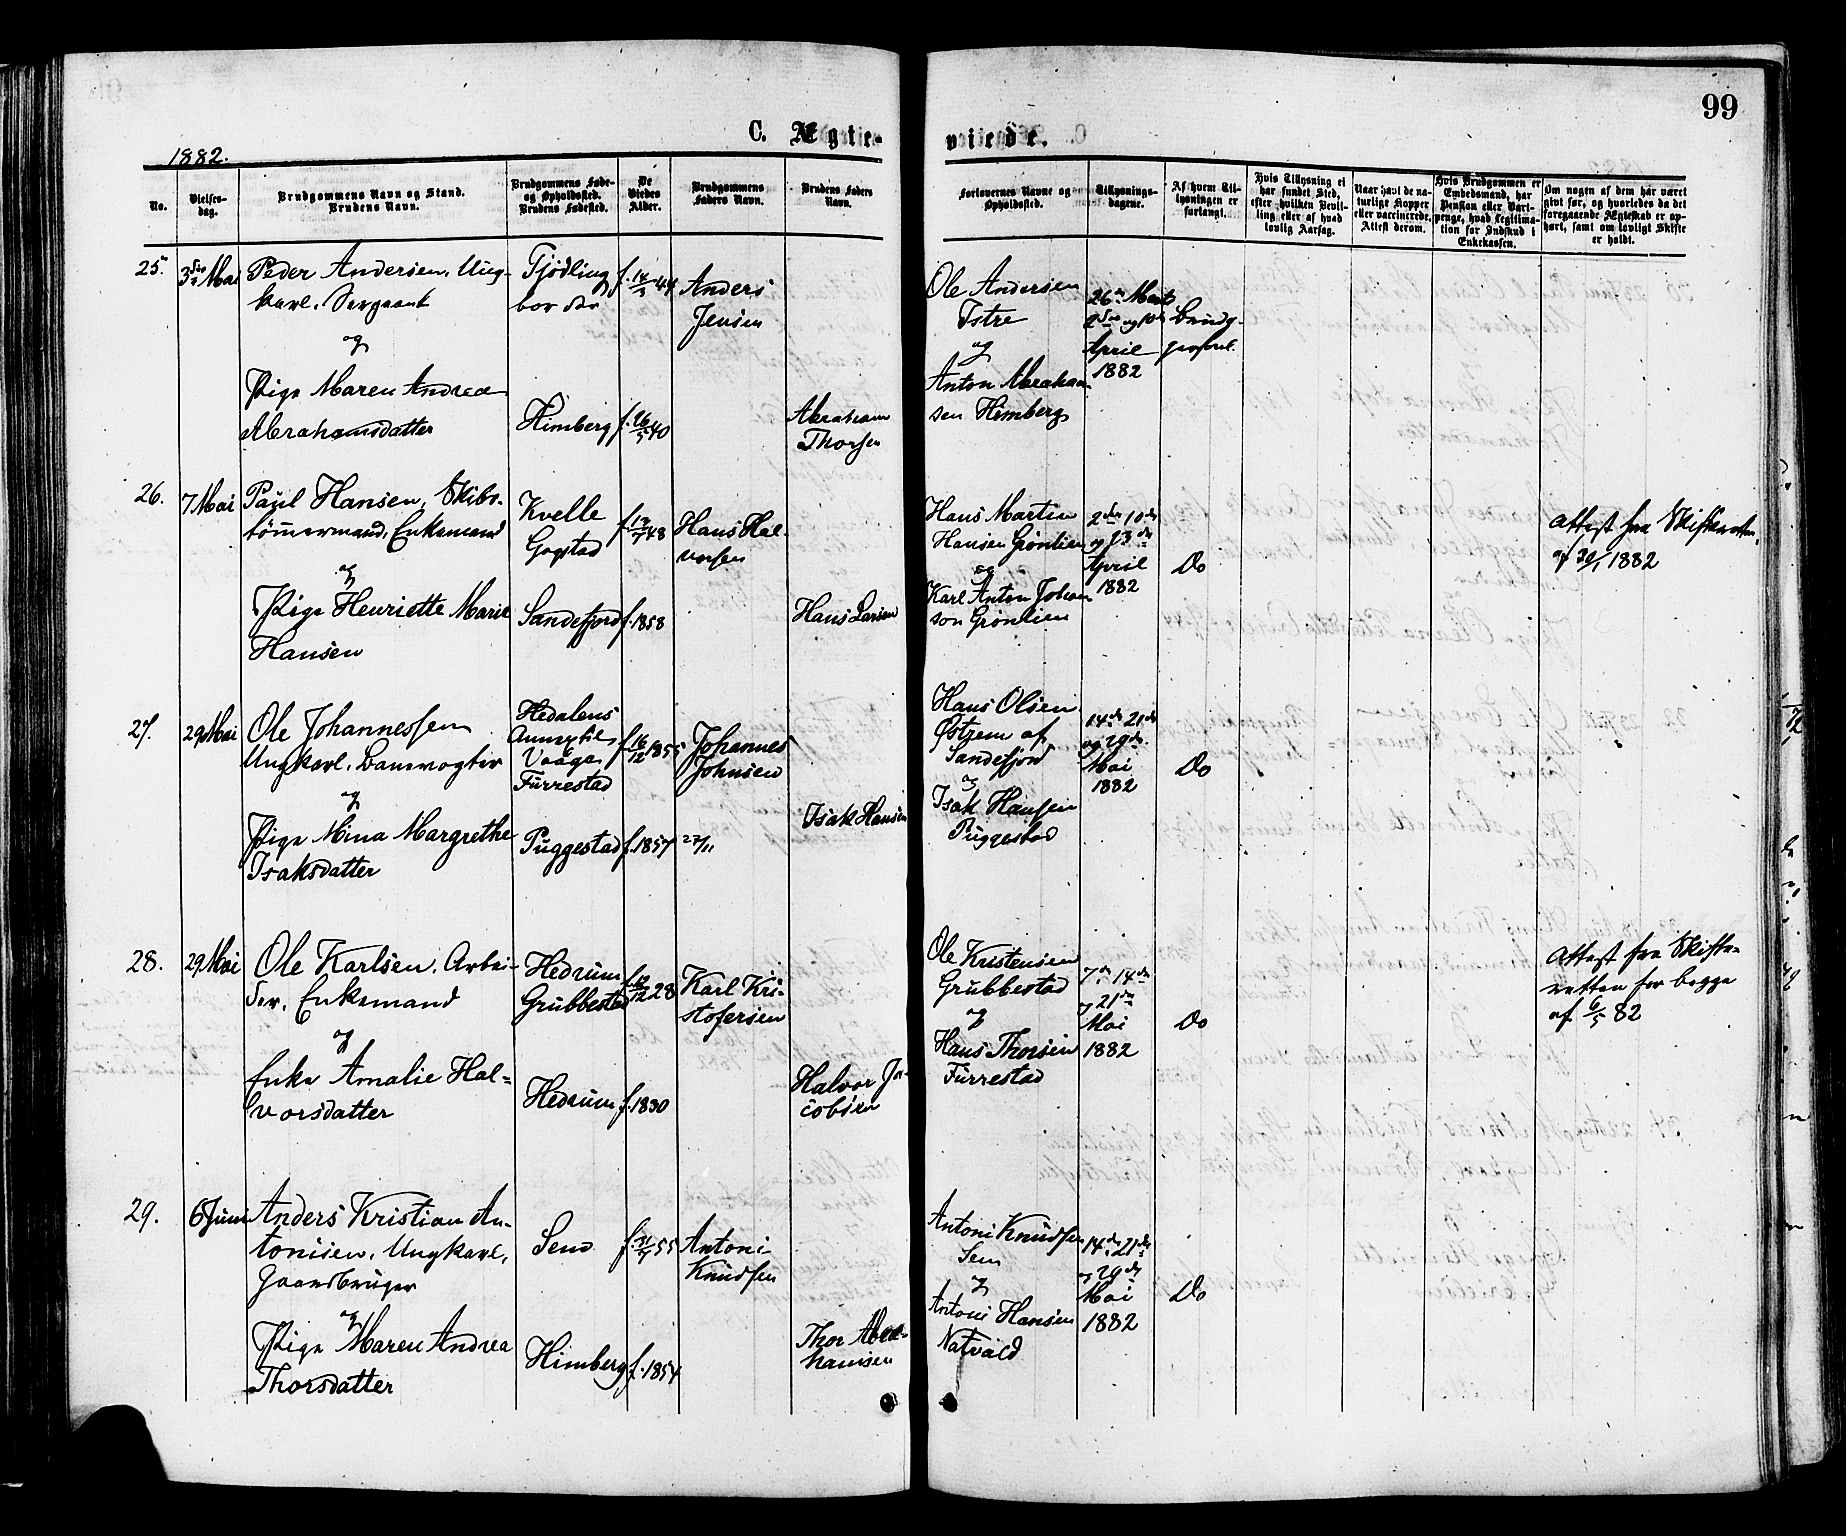 99
C. Ægte-
viede.
1882.
No.
Vielses-
dag.
Brudgommens Navn og Stand.
Brudens Navn.
Brudgommens Føde-
og Opholdssted.
Brudens Fødested.
De
Viedes
Alder.
Brudgommens
Faders Navn.
Brudens Faders
Navn.
Forlovernes Navne og
Opholdssted.
Tillysnings-
dagene.
Af hvem Til-
lysningen er
forlangt.
Hvis Tillysning ei
har fundet Sted,
efter hvilken Bevil-
ling eller af hvad
lovlig Aarsag.
Naar havt de na-
turlige Kopper
eller vaccinerede,
Attest derom.
Hvis Brudgommen er
Embedsmand, har
Pension eller Vart-
penge, hvad Legitima-
tion for Indskud i
Enkekassen.
Om nogen af dem har været
givt før, og hvorledes da det
foregaaende Ægteskab er op-
hørt, samt om lovligt Skifte
er holdt.
25.
Mai
Peder Andersen, Ung-
karl, Sergeant
og
Pige Maren Andrea
Abrahamsdatter
Tjødling
bor der
Himberg
f. 14/3 44
f. 26/5 40
Anders
Jensen
Abraham
Thorsen
Ole Andersen
Istre
og
Anton Abraham
sen Himberg
26de Marts
2den og 10de
April
1882
26.
7 Mai
Paul Hansen, Skibs-
tømmermand, Enkemand
og
Pige Henriette Marie
Hansen
Kvelle
Gogstad
Sandefjord
f. 12/7 48
f. 1858
Hans Hal-
vorsen
Hans Larsen
Hans Martin
Hansen Grønlien
og
Karl Anton Johan
sen Grønlien
2den 10de
og 23de
April
1882
Do
Attest fra Skifteretten
af 30/1 1882
27.
29 Mai
Ole Johannessen
Ungkarl, Banevogter
og
Pige Mina Margrethe
Isaksdatter
Hedalens
Annex til
Vaage
Furrestad
Puggestad
f. 16/12 1855
f. 1857 27/11
Johannes
Johnsen
Isak Hansen
Hans Olsen
Østrem af
Sandefjord
og
Isak Hansen
Puggestad
14de 21de
og 29de
Mai
1882
Do
28.
29 Mai
Ole Karlsen, Arbei-
der, Enkemand
og
Enke Amalie Hal-
vorsdatter
Hedrum
Grubbestad
Hedrum
f. 1830
Karl Kri-
stofersen
Halvor Ja-
cobsen
Ole Kristensen
Grubbestad
og
Hans Thorsen
Furrestad
7de 14de
og 21de
Mai
1882
Do
Attest fra Skifte-
retten for begge
af 6/5 82
29.
6 Juni
Anders Kristian An-
tonisen, Ungkarl,
Gaardbruger
og
Pige Maren Andrea
Thorsdatter
Sem
Himberg
f. 1854
Antoni
Knudsen
Thor Abra-
hamsen
Antoni Knudsen
Sem
og
Antoni Hansen
Natvald
14de 21de
og 29de
Mai
1882
Do